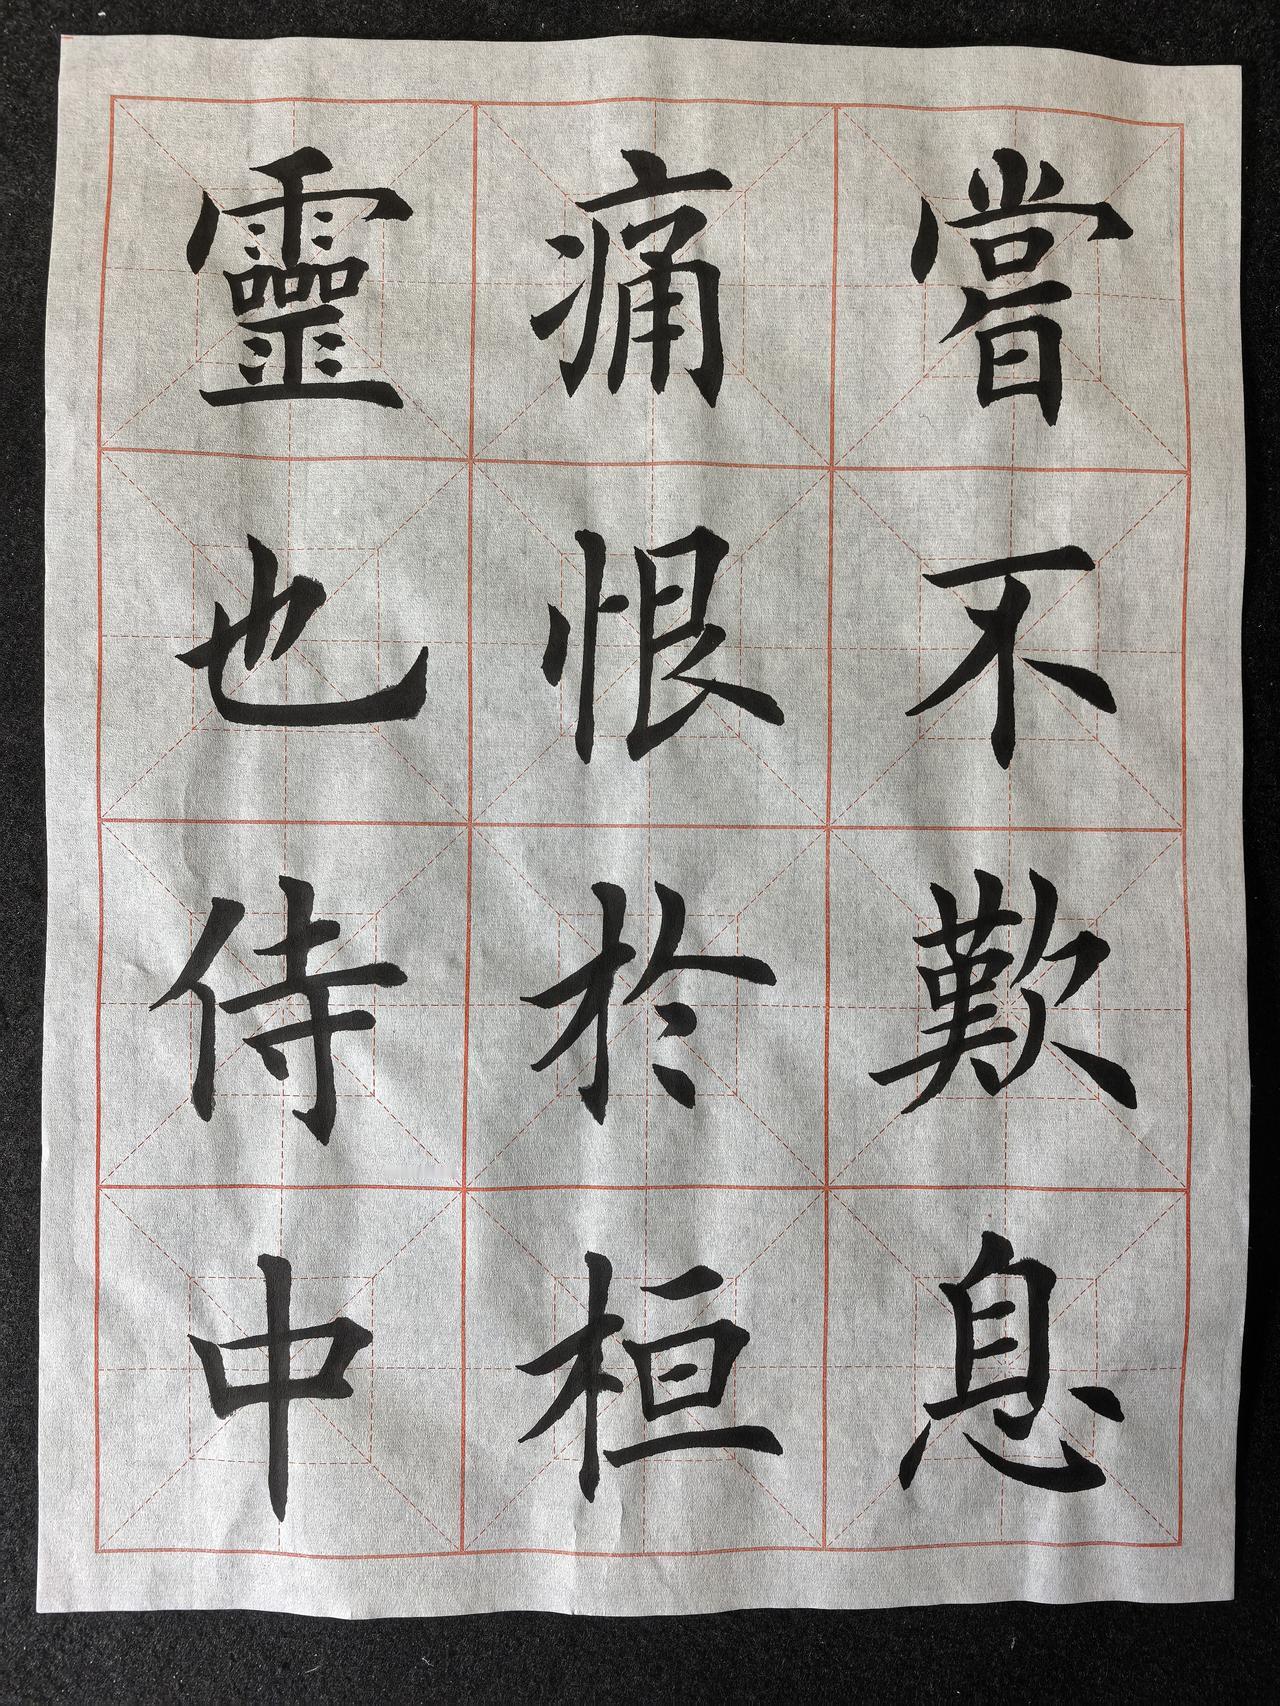 嘗不歎息
痛恨於桓
靈也侍中